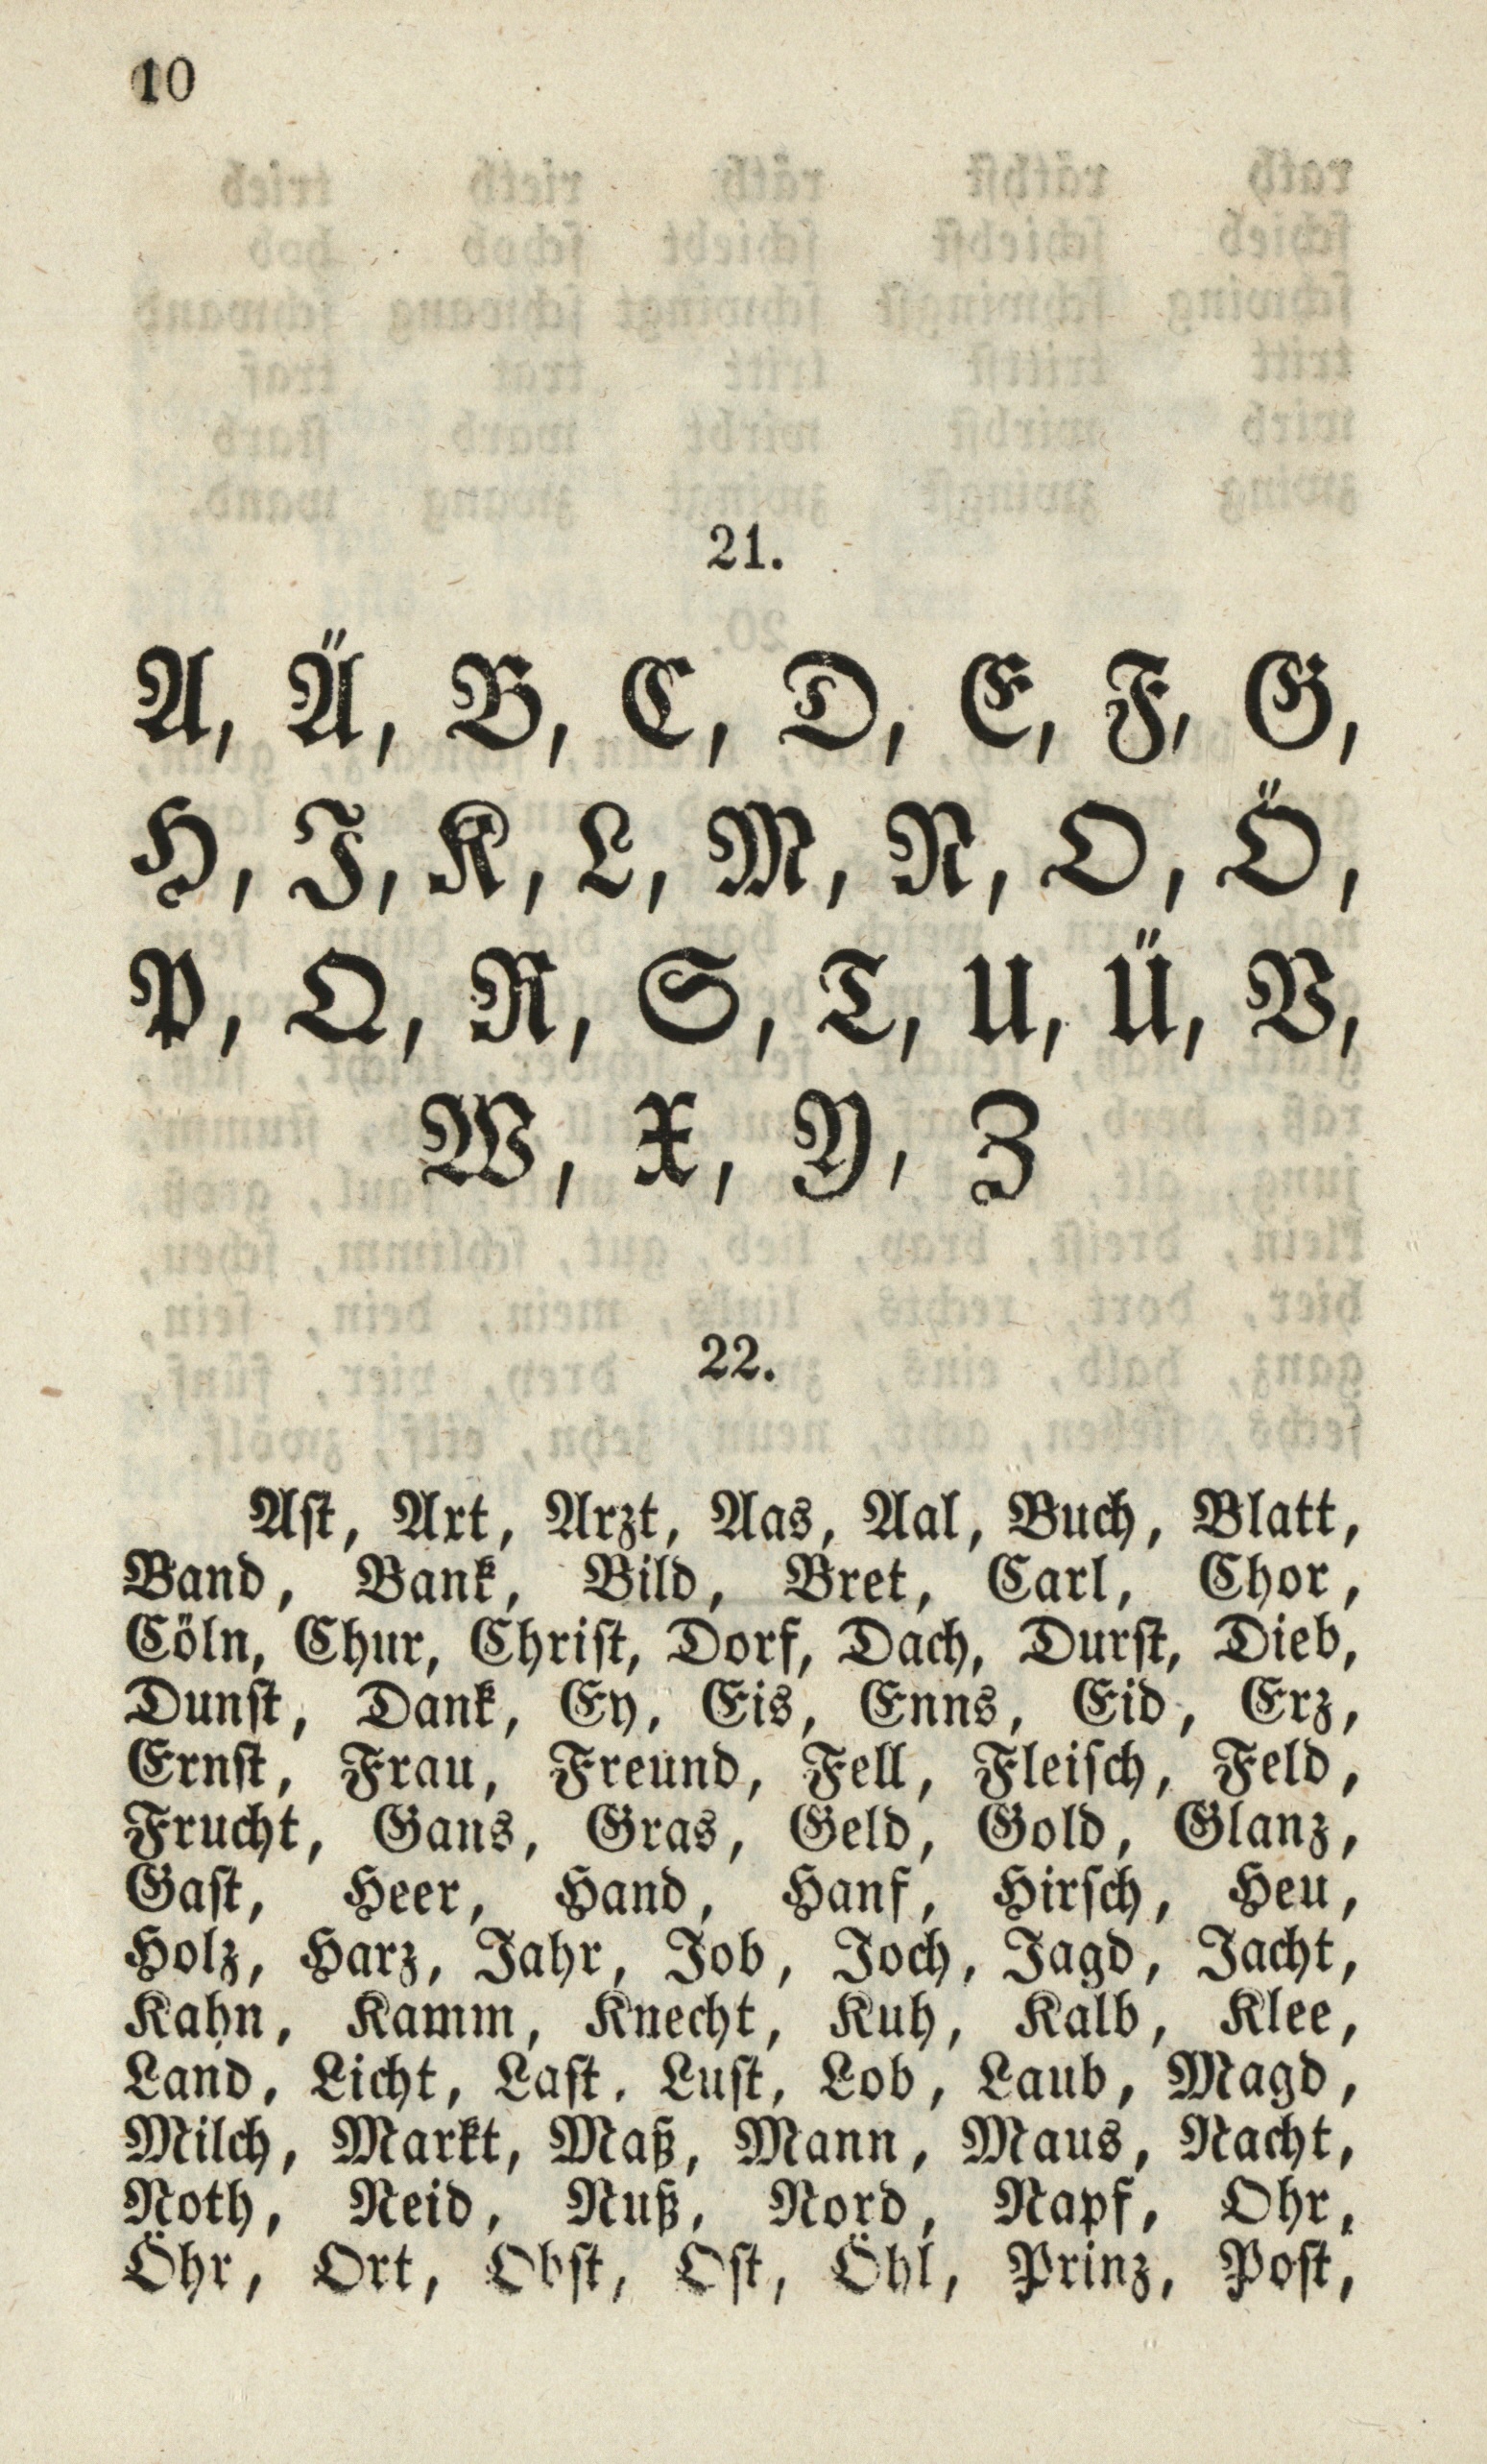 10
21.
A, Ä, B, C, D, E, F, G,
H, J, K, L, M, N, O, Ö,
P, Q, R, S, T, U, Ü, V,
W, X, Y, Z
22.
Aſt, Axt, Arzt, Aas, Aal, Buch, Blatt,
Band, Bank, Bild, Bret, Carl, Chor,
Cöln, Chur, Chriſt, Dorf, Dach, Durſt, Dieb,
Dunſt, Dank, Ey, Eis, Enns, Eid, Erz,
Ernſt, Frau, Freund, Fell, Fleiſch, Feld,
Frucht, Gans, Gras, Geld, Gold, Glanz,
Gaſt, Heer, Hand, Hanf, Hirſch, Heu,
Holz, Harz, Jahr, Job, Joch, Jagd, Jacht,
Kahn, Kamm, Knecht, Kuh, Kalb, Klee,
Land, Licht, Laſt, Luſt, Lob, Laub, Magd,
Milch, Markt, Maß, Mann, Maus, Nacht,
Noth, Neid, Nuß, Nord, Napf, Ohr,
Öhr, Ort, Obſt, Oſt, Öhl, Prinz, Poſt,